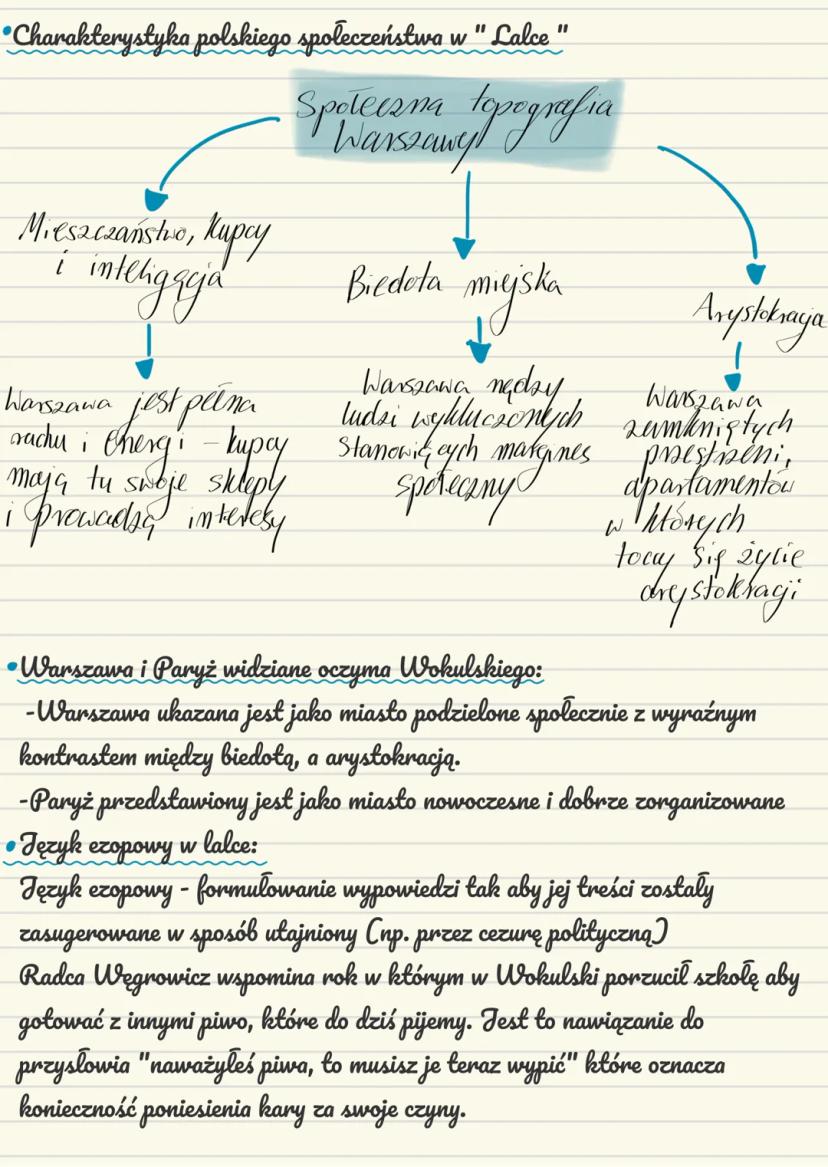 •Charakterystyka polskiego społeczeństwa w " Lalce "
Społeczna topografia
Warszawy
Mieszczaństwo, kupcy
i inteligęcja
Warszawa jest pełna
ruchu i energi - kupcy
mają tu swoje sklepy
i prowadzą interesy
Biedota miejska
Warszawa nędzy
ludzi wykluczonych
stanowiących margines
społeczny
Arystokracja
Warszawa
zamkniętych
przestrzeni,
apartamentów
w których
toczy się życie
arystokracji
•Warszawa i Paryż widziane oczyma Wokulskiego:
-Warszawa ukazana jest jako miasto podzielone społecznie z wyraźnym
kontrastem między biedotą, a arystokracją.
-Paryż przedstawiony jest jako miasto nowoczesne i dobrze zorganizowane
•Język ezopowy w lalce:
Język ezopowy - formułowanie wypowiedzi tak aby jej treści zostały
zasugerowane w sposób utajniony (np. przez cezurę polityczną)
Radca Węgrowicz wspomina rok w którym w Wokulski porzucił szkołę aby
gotować z innymi piwo, które do dziś pijemy. Jest to nawiązanie do
przysłowia "naważyłeś piwa, to musisz je teraz wypić" które oznacza
konieczność poniesienia kary za swoje czyny.